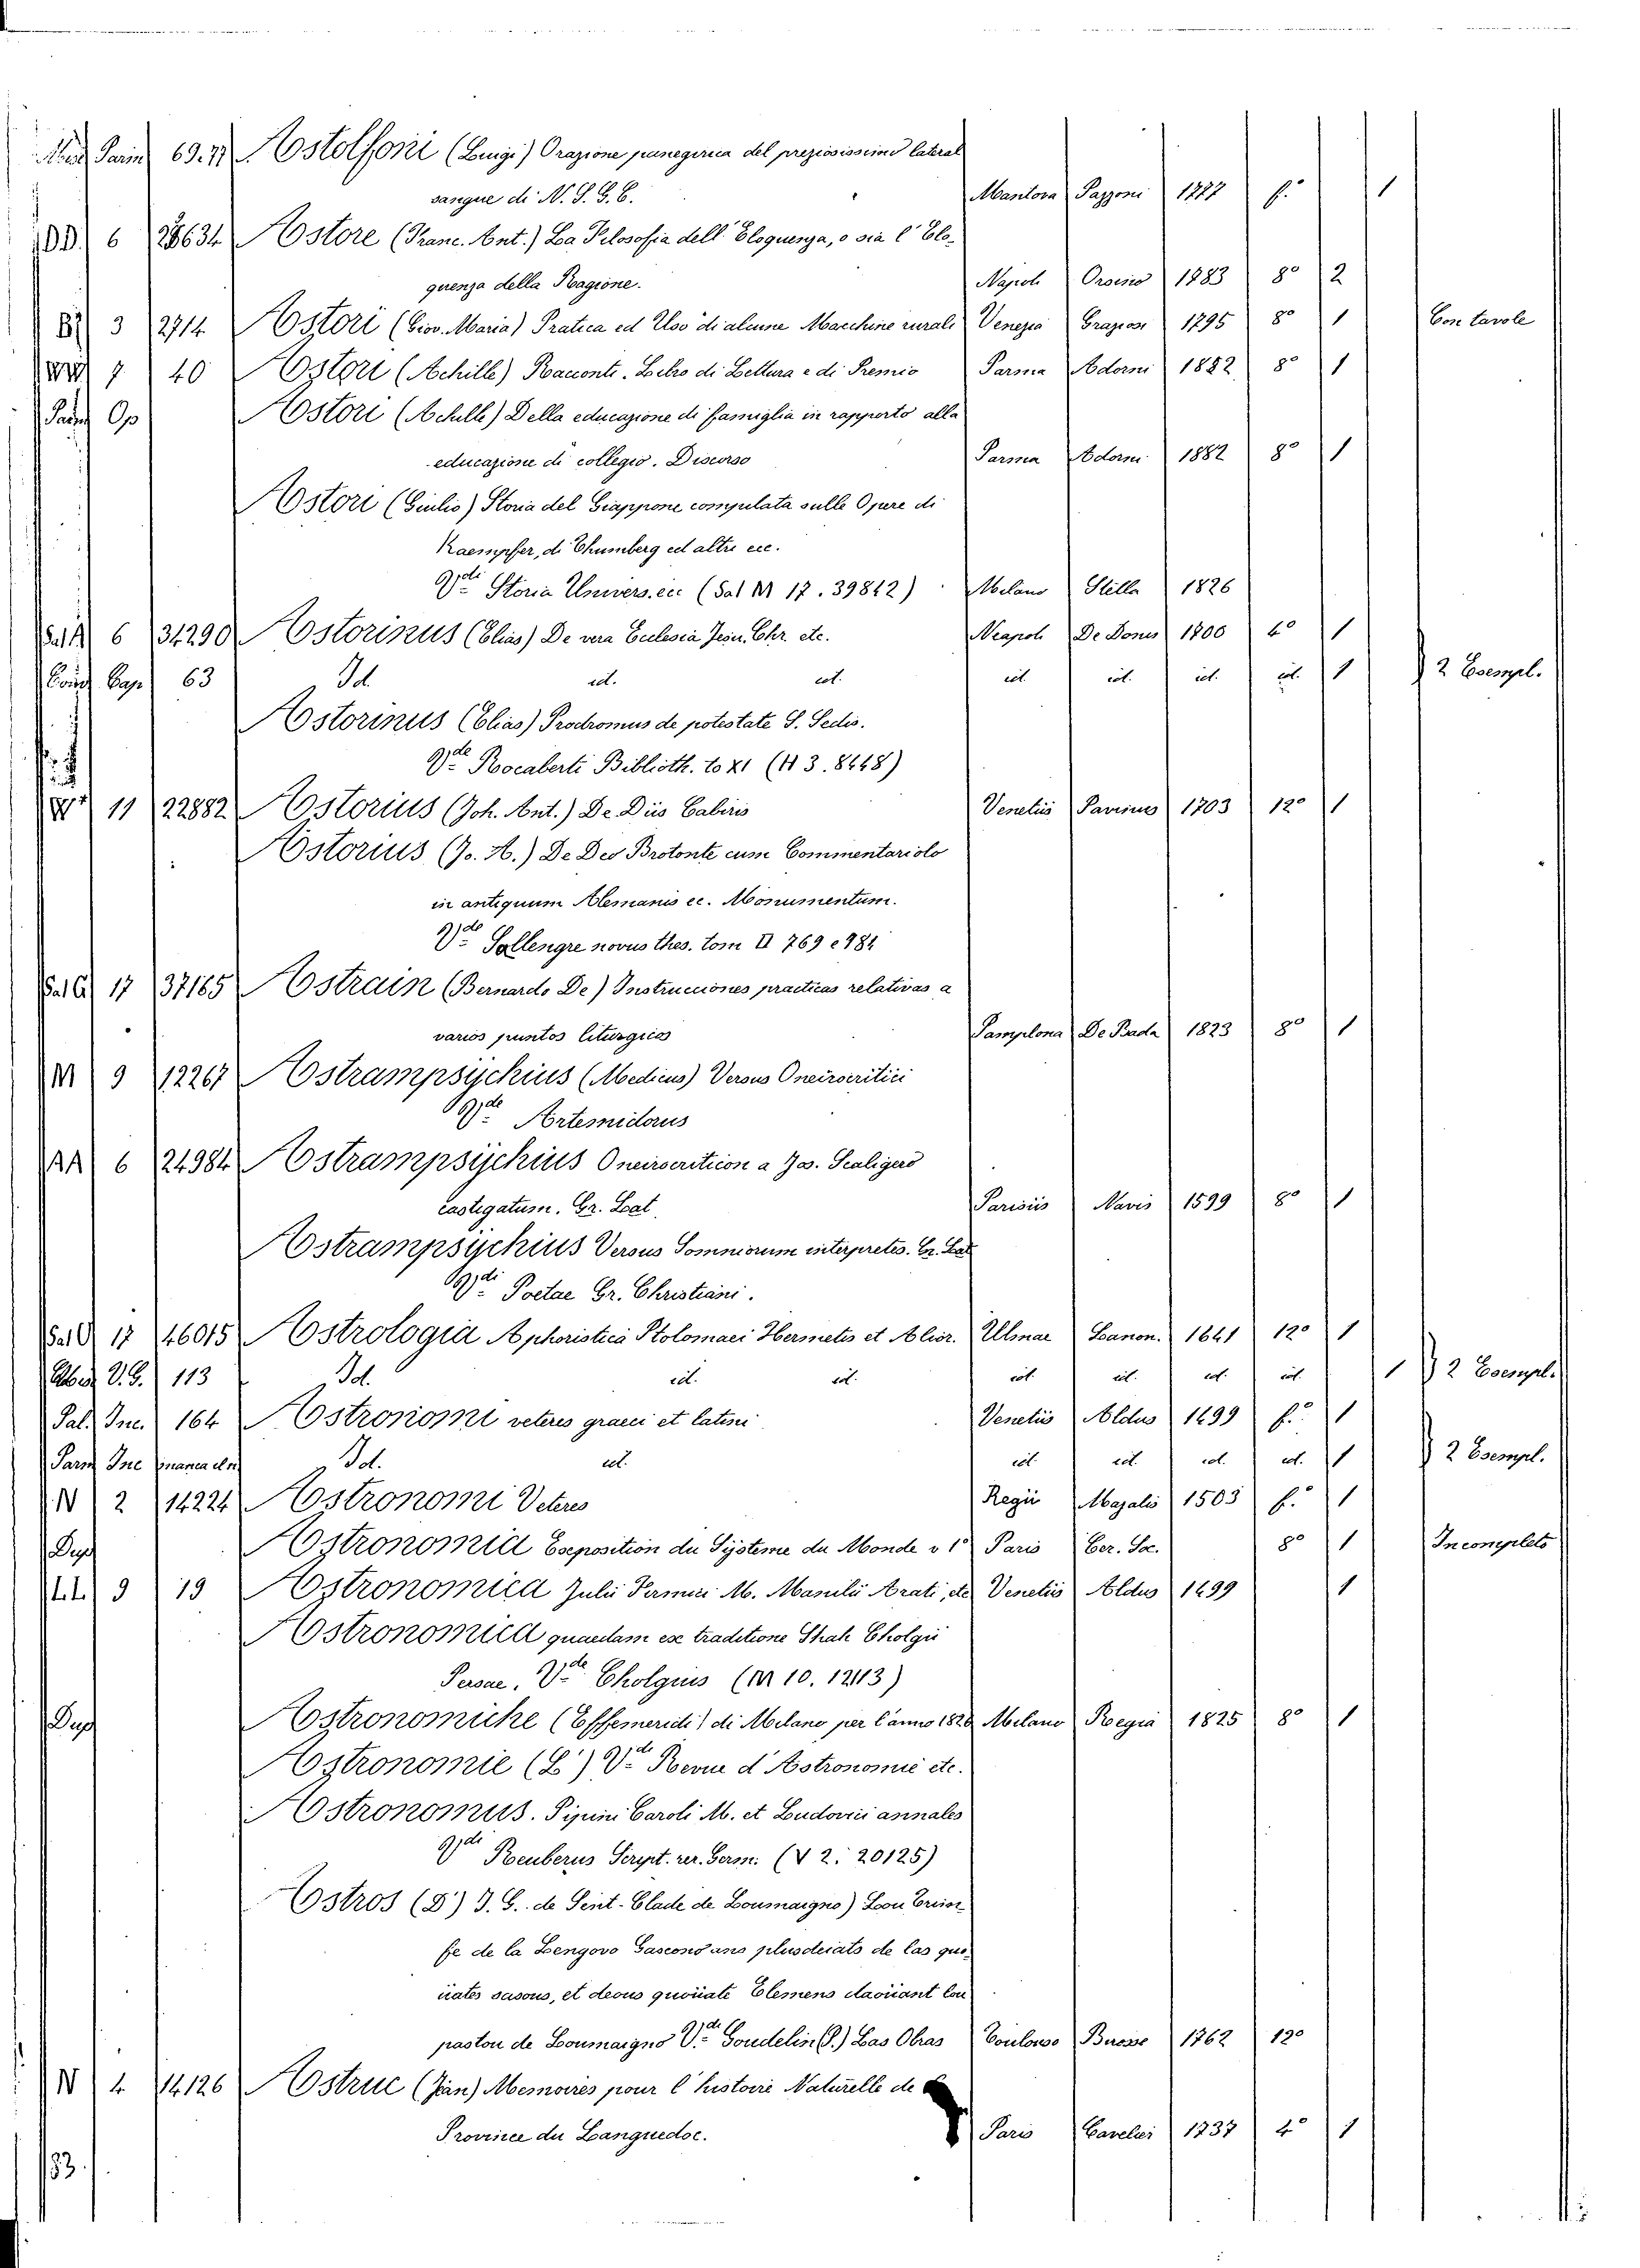 Parm 69.77 Astolfoni (Luigi) Orazione panegirica del preziosissimo lateral
sangue di N. S. G. C. Mantova Pazzoni 1777 f.º 1
DD. 6 28634 Astore (Franc. Ant.) La Filosofia dell' Eloquenza, o sia l' Elo-
quenza della Ragione. Napoli Orsino 1783 8º 2
3 2714 Astori (Giov. Maria) Pratica ed Uso di alcune Macchine rurali Venezia Graziosi 1795 8º 1 Con tavole
7 40 Astori (Achille) Racconti. Libro di Lettura e di Premio Parma Adorni 1882 8º 1
Op Astori (Achille) Della educazione di famiglia in rapporto alla
educazione di collegio. Discorso Parma Adorni 1882 8º 1
Astori (Giulio) Storia del Giappone compilata sulle Opere di
Kaempfer, di Thumberg ed altri ecc.
Vdi Storia Univers. ecc (Sal M 17. 39842) Milano Stella 1826
Sal A 6 34290 Astorinus (Elias) De vera Ecclesia Jesu Chr. etc. Neapoli De Bonis 1700 4º 1
Cap 63 Id. id. id. id. id. id. id. 1 2 Esempl.
Astorinus (Elias) Prodromus de potestate S. Sedis.
Vde Rocaberti Biblioth. to XI (H 3. 8448)
11 22882 Astorius (Joh. Ant.) De Diis Cabiris Venetiis Pavinus 1703 12º 1
Astorius (Jo. A.) De Deo Brotonte cum Commentariolo
in antiquum Alemanis ec. Monumentum.
Vde Sallengre novus thes. tom II 769 e 781
Sal G 17 37165 Astrain (Bernardo De) Instrucciones practicas relativas a
varios puntos liturgicos Pamplona De Rada 1823 8º 1
M 9 12267 Astrampsychius (Medicus) Versus Oneirocritici
Vde Artemidorus
AA 6 24984 Astrampsychius Oneirocriticon a Jos. Scaligero
castigatum. Gr. Lat. Parisiis Navis 1599 8º 1
Astrampsychius Versus Somniorum interpretes. Gr. Lat
Vdi Poetae Gr. Christiani.
Sal O 17 46015 Astrologia Aphoristica Ptolomaei Hermetis et Alior. Ulmae Lanon. 1641 12º 1
V. G. 113 Id. id. id. id. id. id. id. 1 2 Esempl.
Pal. Inc. 164 Astronomi veteres graeci et latini Venetiis Aldus 1499 f.º 1
Parm Inc Id. id. id. id. id. id. 1 2 Esempl.
N 2 14224 Astronomi Veteres Regii Mazalis 1503 f.º 1
Dup Astronomia Exposition du Systeme du Monde v 1º Paris Cer. Soc. 8º 1 Incompleto
LL 9 19 Astronomica Julii Firmici M. Manilii Arati, etc Venetiis Aldus 1499 1
Astronomica quaedam ex traditione Shah Cholgii
Persae. Vde Cholgius (M 10. 12113)
Dup Astronomiche (Effemeridi) di Milano per l'anno 1826 Milano Regia 1825 8º 1
Astronomie (L') Vde Revue d'Astronomie etc.
Astronomus. Pipini Caroli M. et Ludovici annales
Vdi Reuberus Script. rer. Germ. (V 2. 20125)
Astros (D') J. G. de Sent-Clade de Loumaigno) Lou
fe de la Lengovo Gascono ans de las quo-
uates sasous, et deous quouate Elemens daouant lou
pastou de Loumaigno Vde Goudelin (P.) Las Obras Toulouso 1762 12º
N 4 14126 Astruc (Jean) Memoires pour l' histoire Naturelle de
Province du Languedoc. Paris Cavelier 1737 4º 1
33.